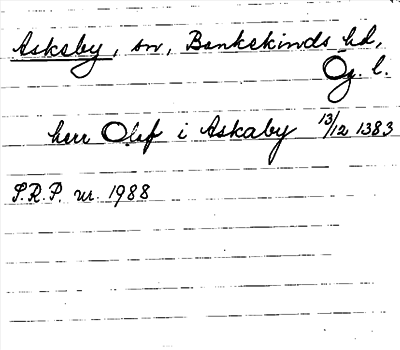 Askeby, sn, Bankekinds hd,
Ög. l.
herr Olef i Askaby 13/12 1383
S.R.P. nr. 1988